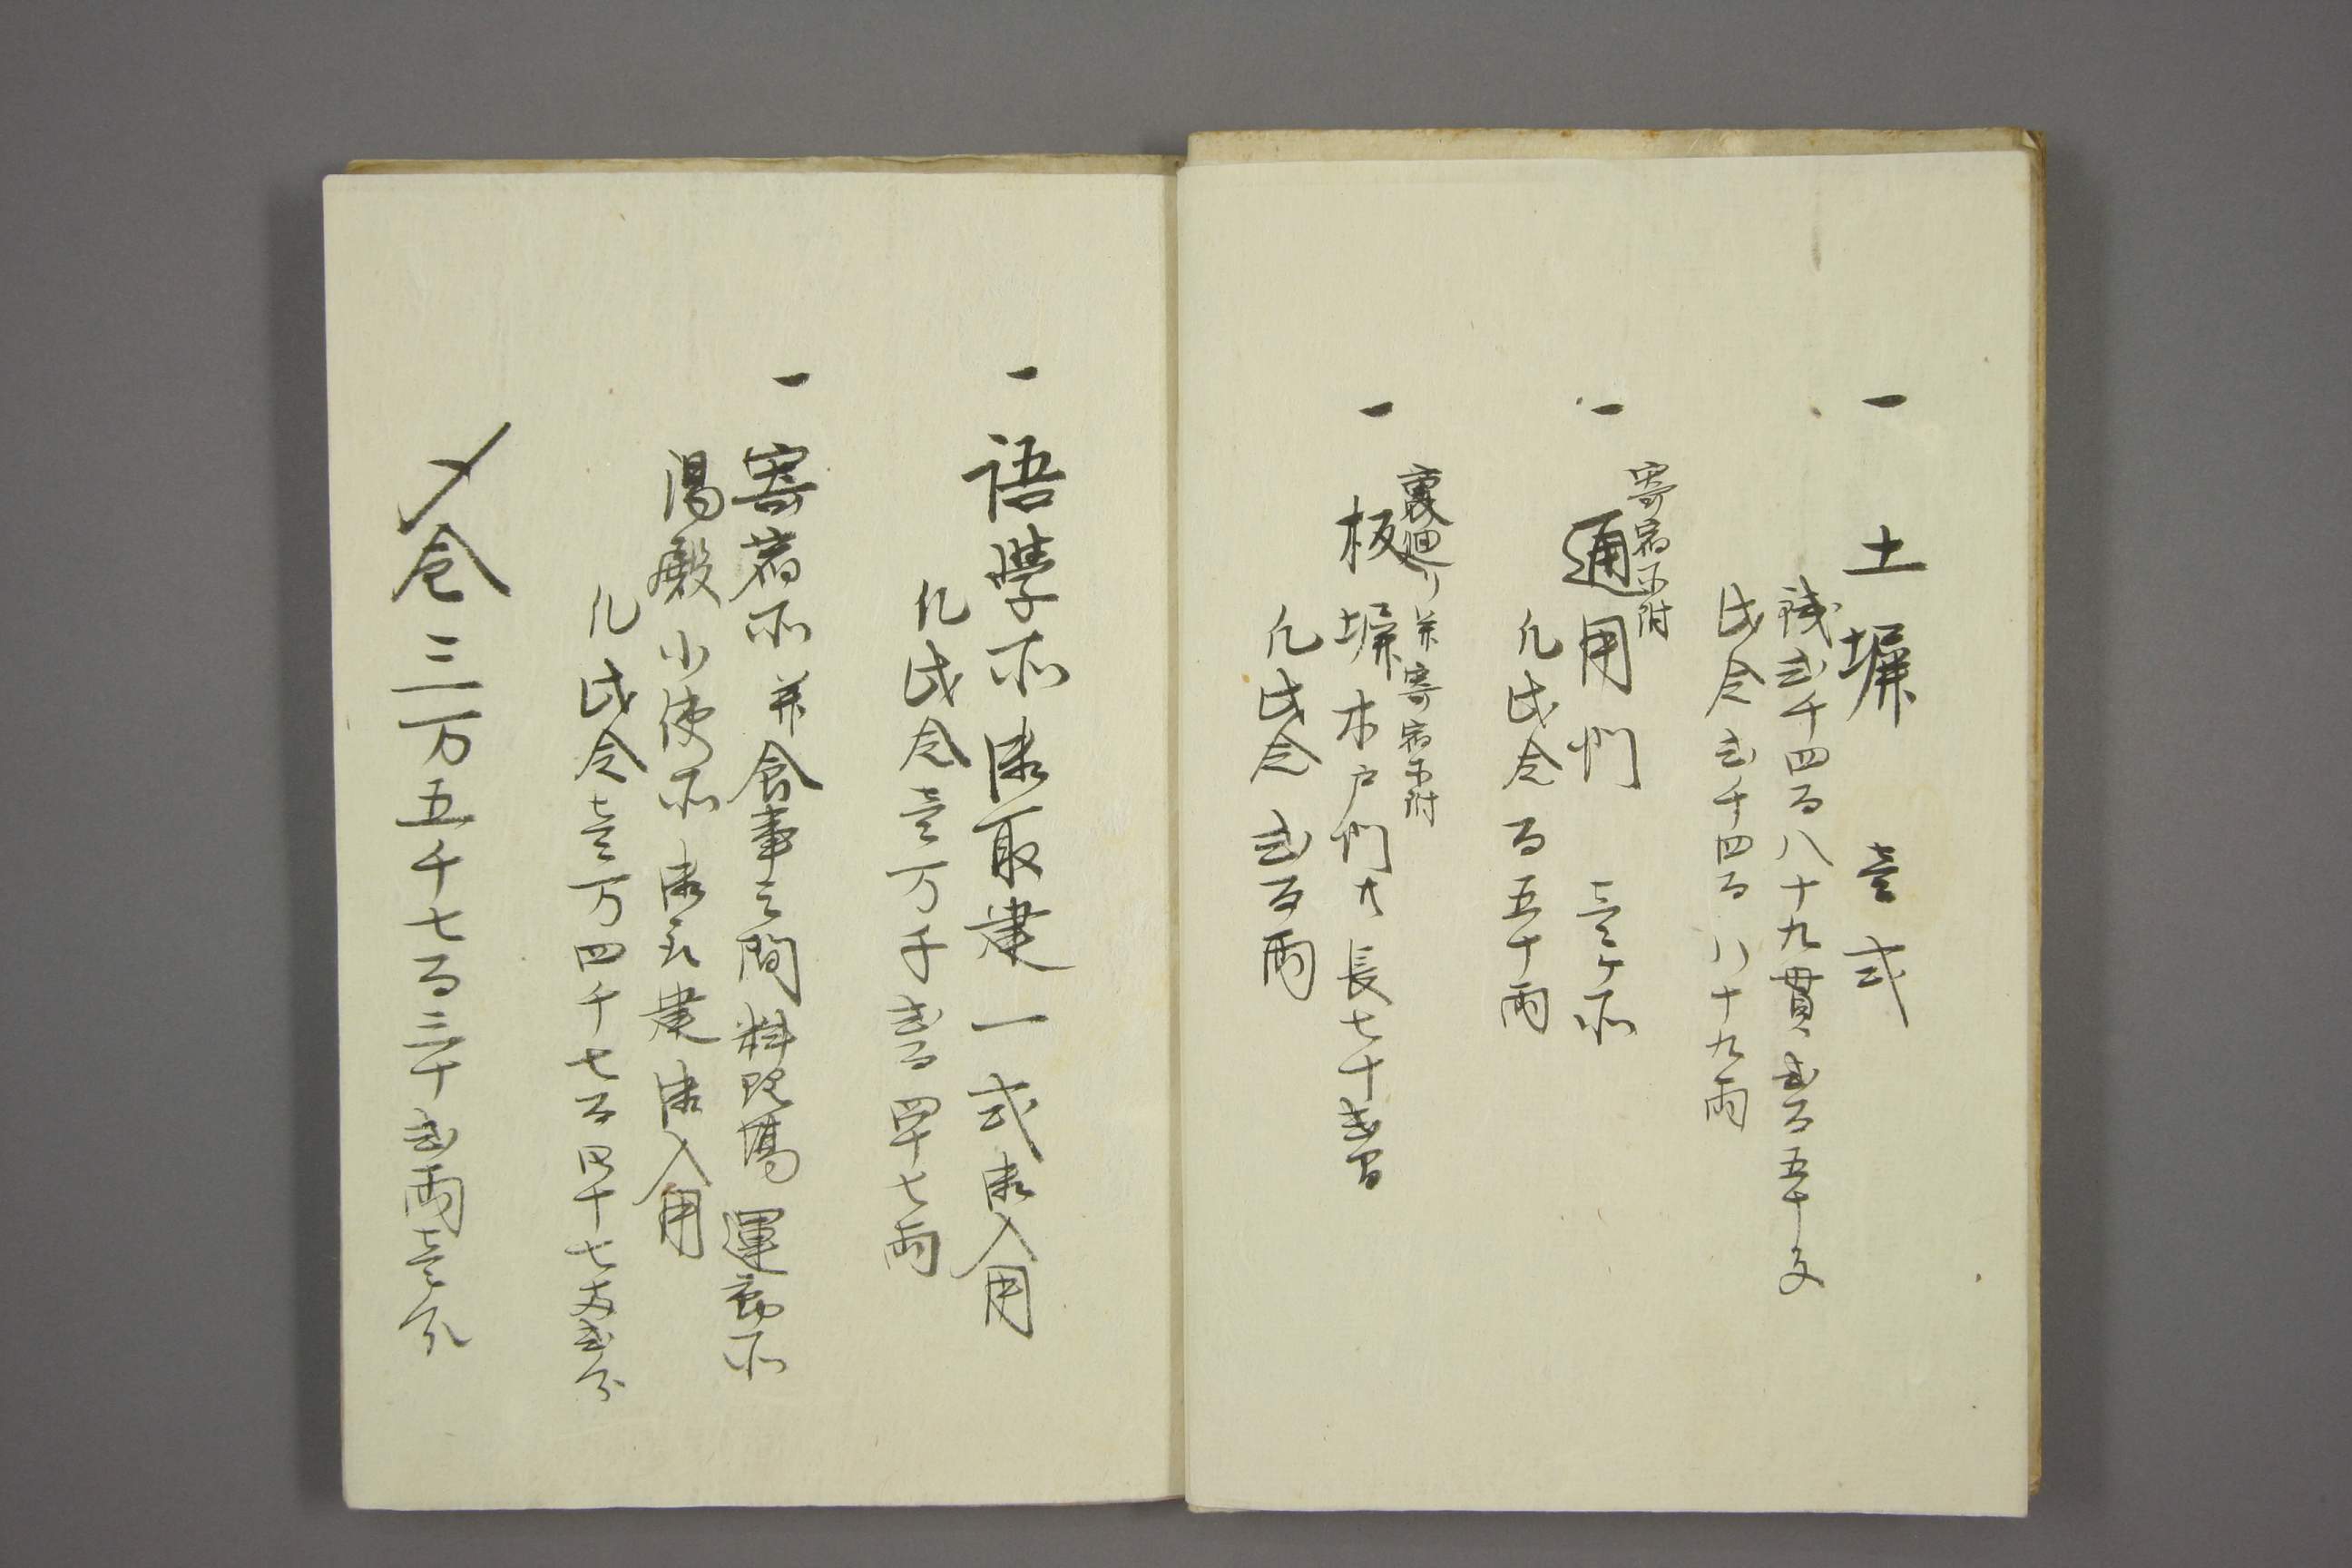 一 土塀 壱式
銭弐千四百八十九貫弐百五十文
此金弐千四百八十九両
寄宿所附
一 通用門 壱ケ所
凡此金百五十両
裏廻り并寄宿所附
一 板塀木戸門共長七十弐間
凡此金弐百両
一 語学所御取建一式御入用
凡此金壱万千弐百四十七両
一 寄宿所并食事之間料理場運動所
湯殿小使所御取建御入用
凡此金壱万四千七百四十七両弐分
〆金三万五千七百三十弐両壱分